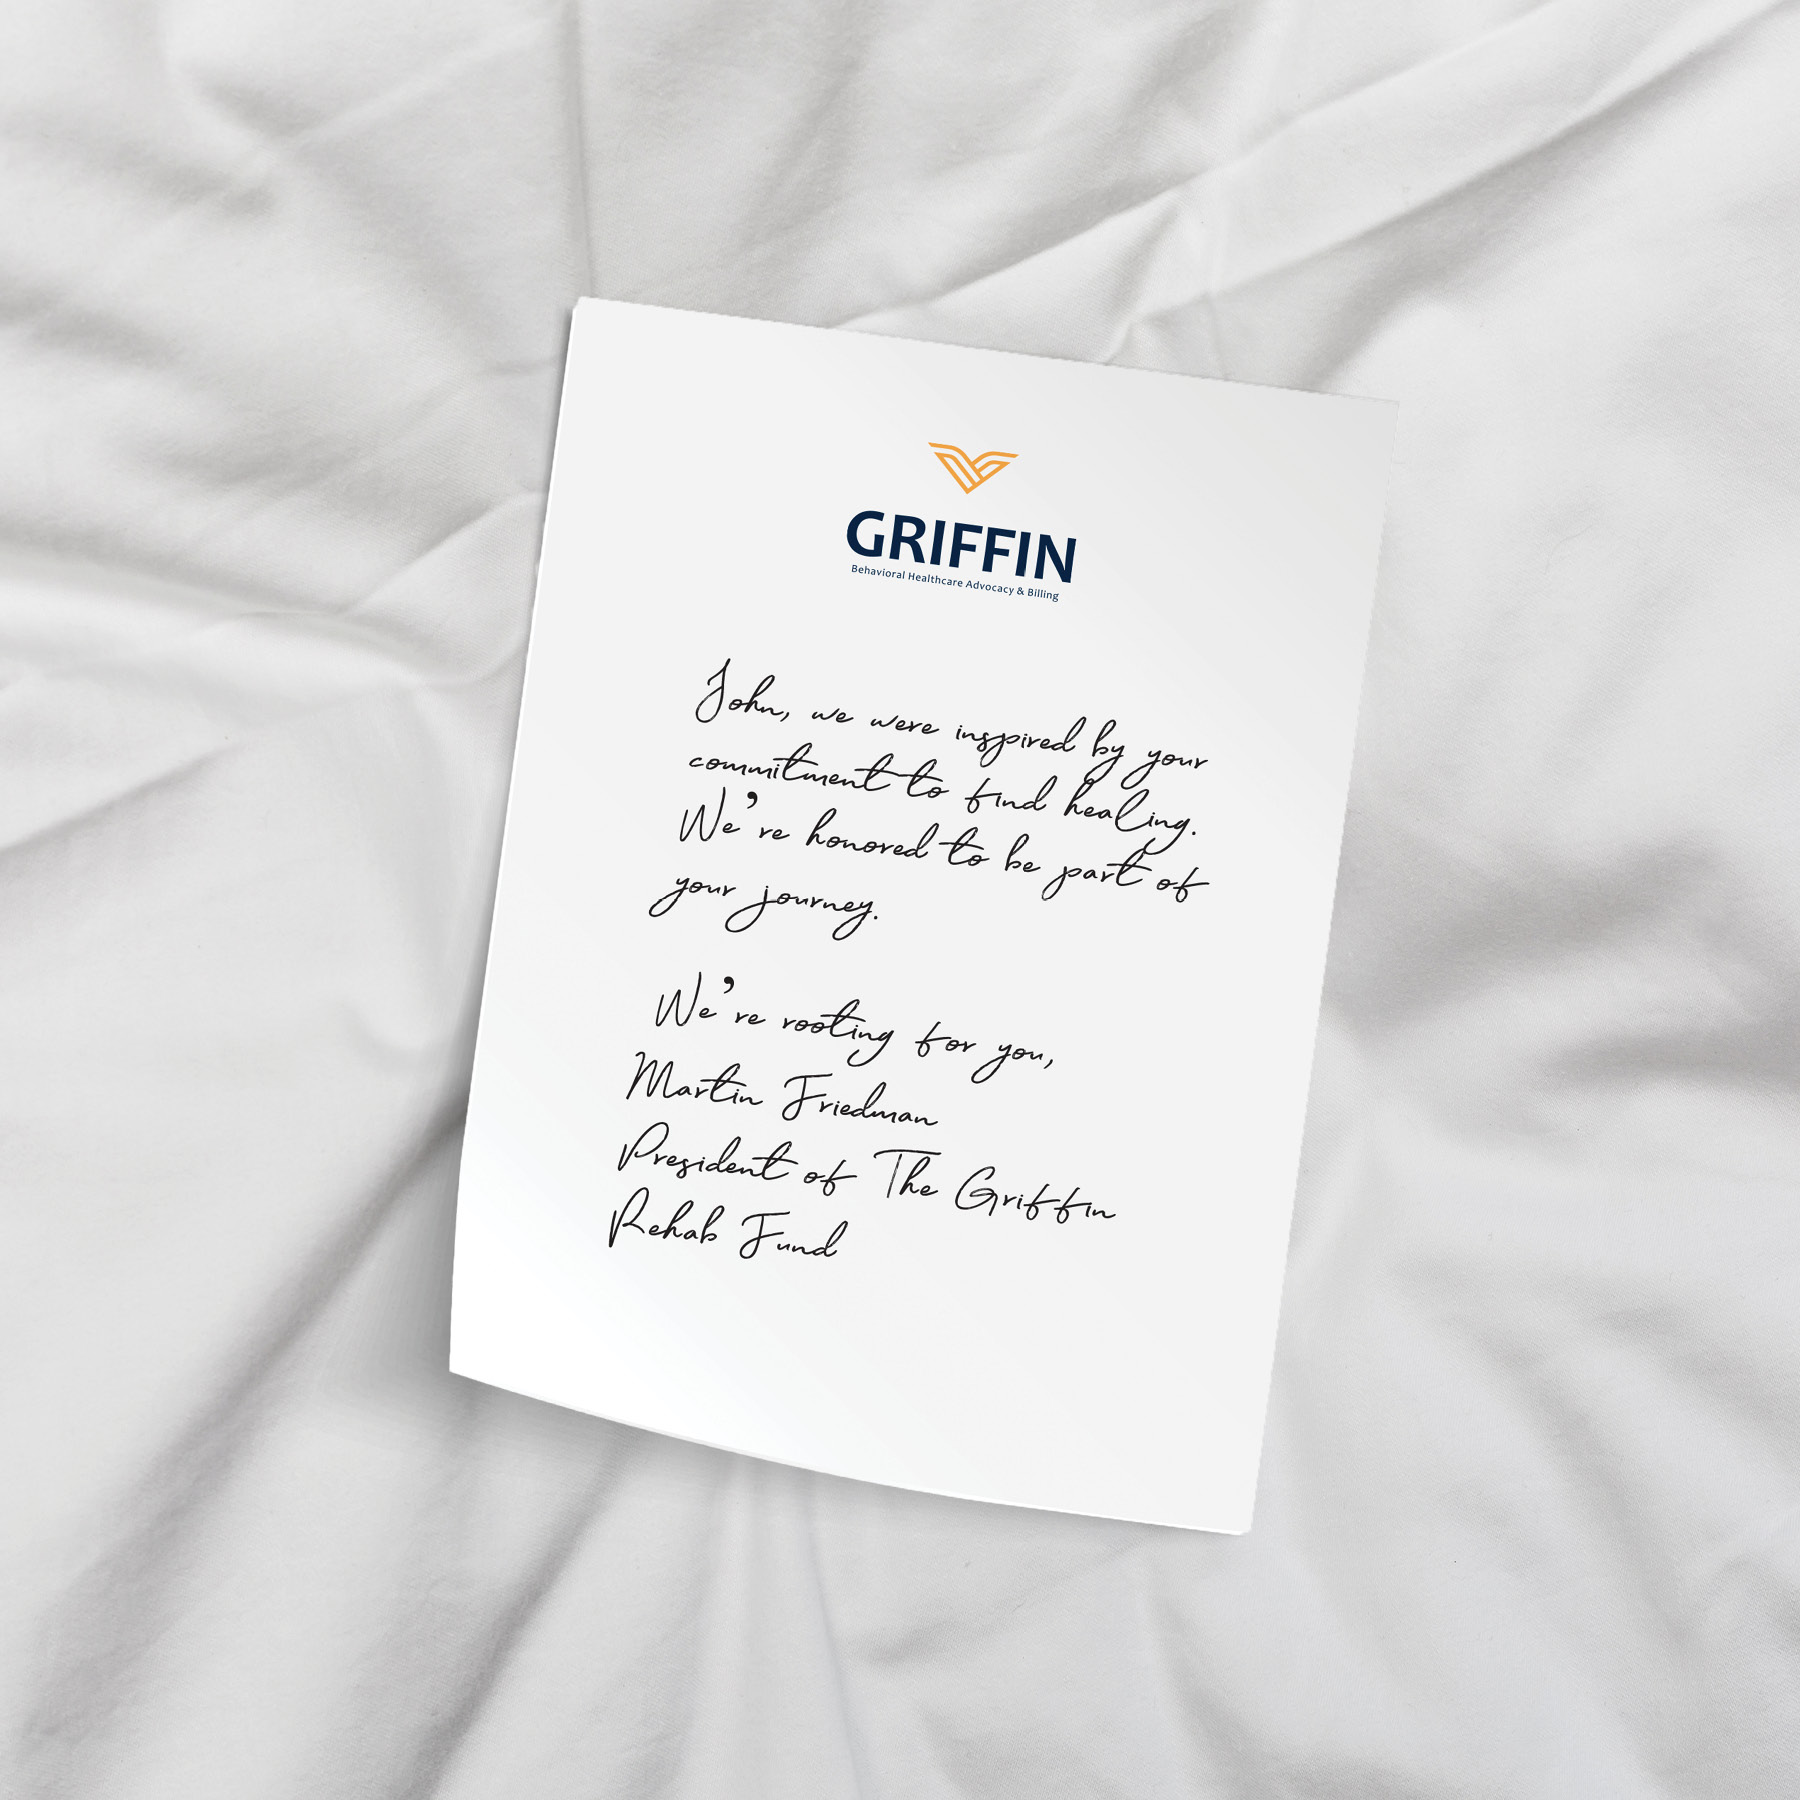 GRIFFIN
Behavioral Healthcare Advocacy & Billing
John, we were inspired by your
commitment to find healing.
We're honored to be part of
your journey.
We're rooting for you,
Martin Friedman
President of The Griffin
Rehab Fund